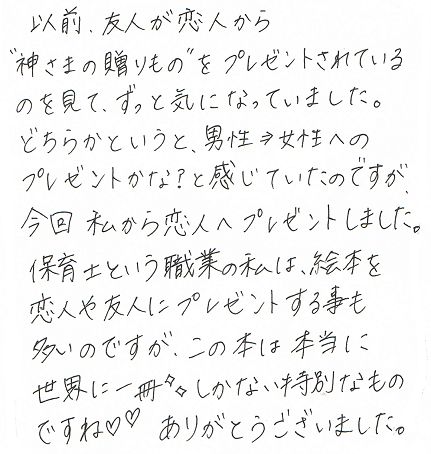 以前、友人が恋人から
"神さまの贈りもの"をプレゼントされている
のを見て、ずっと気になっていました。
どちらかというと、男性⇒女性への
プレゼントかな？と感じていたのですが、
今回 私から恋人へプレゼントしました。
保育士という職業の私は、絵本を
恋人や友人にプレゼントする事も
多いのですが、この本は本当に
世界に一冊しかない特別なもの
ですね♡♡ ありがとうございました。